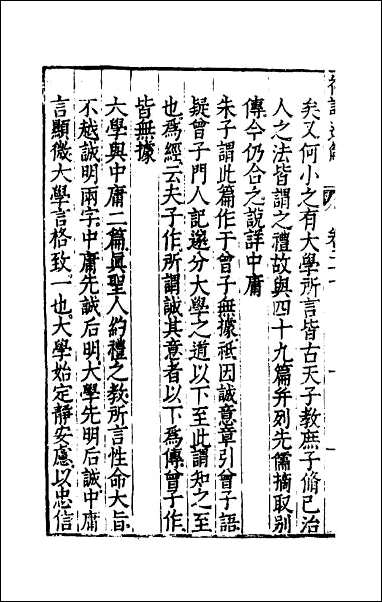 矣又何小之有大學所言皆古天子教庶子脩己治
人之法皆謂之禮故與四十九篇并列先儒摘取别
傳今仍合之說詳中庸
朱子謂此篇作于曾子無據祗因誠意章引曾子語
疑曾子門人記遂分大學之道以下至此謂知之至
也為經云夫子作所謂誠其意者以下為傳曾子作
皆無據
大學與中庸二篇真聖人約禮之教所言性命大旨
不越誠明兩字中庸先誠后明大學先明后誠中庸
言顯微大學言格致一也大學始定靜安應以忠信